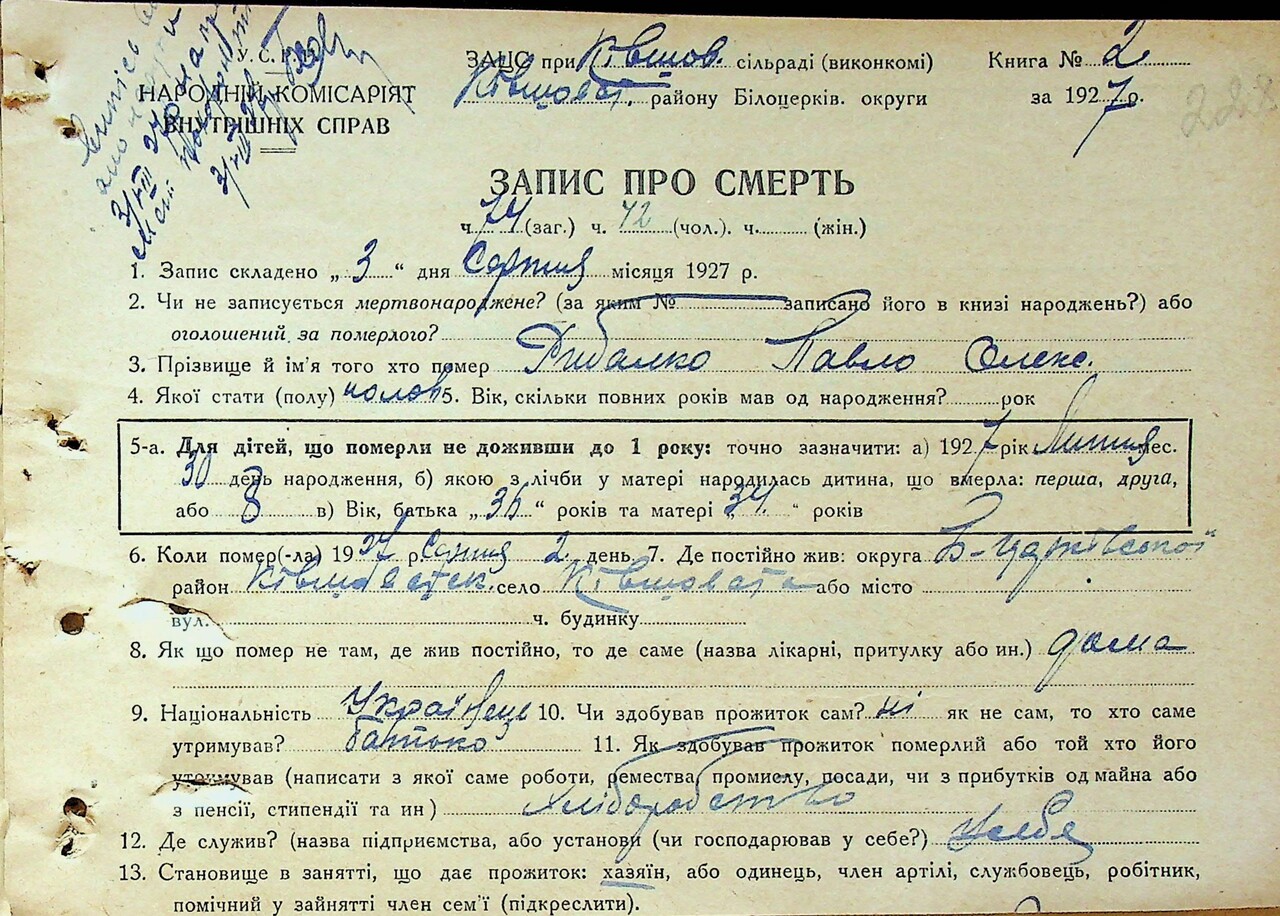 У.С.Р.Р.
НАРОДНІЙ КОМІСАРІЯТ
ВНУТРІШНІХ СПРАВ
ЗАГС при Ківшов. сільраді (виконкомі)
Ківшоват. району Білоцерків. округи
Книга № 2
за 1927 р.
228
3/VIII 27
3/VIII 27
ЗАПИС ПРО СМЕРТЬ
ч. 74 (заг.) ч. 42 (чол.). ч. (жін.)
1. Запис складено „ 3 “ дня Серпня місяця 1927 р.
2. Чи не записується мертвонароджене? (за яким № записано його в книзі народжень?) або
оголошений за померлого?
3. Прізвище й ім'я того хто помер Рибалко Павло Олекс.
4. Якої стати (полу) чолов 5. Вік, скільки повних років мав од народження? рок
5-а. Для дітей, що померли не доживши до 1 року: точно зазначити: а) 1927 рік Липня мес.
30 день народження, б) якою з лічби у матері народилась дитина, що вмерла: перша, друга,
або 8 в) Вік, батька „ 36 “ років та матері „ 34. “ років
6. Коли помер(-ла) 1927 р. Серпня 2 день, 7. Де постійно жив: округа Б-Церківської
район Ківшоватськ. село Ківшовата або місто
вул. ч. будинку
8. Як що помер не там, де жив постійно, то де саме (назва лікарні, притулку або ин.) дома
9. Національність Українець 10. Чи здобував прожиток сам? ні як не сам, то хто саме
утримував? батько 11. Як здобував прожиток померлий або той хто його
утримував (написати з якої саме роботи, ремества, промислу, посади, чи з прибутків од майна або
з пенсії, стипендії та ин) Хліборобство
12. Де служив? (назва підприємства, або установи (чи господарював у себе?) У себе
13. Становище в занятті, що дає прожиток: хазяїн, або одинець, член артілі, службовець, робітник,
помічний у зайнятті член сем'ї (підкреслити).